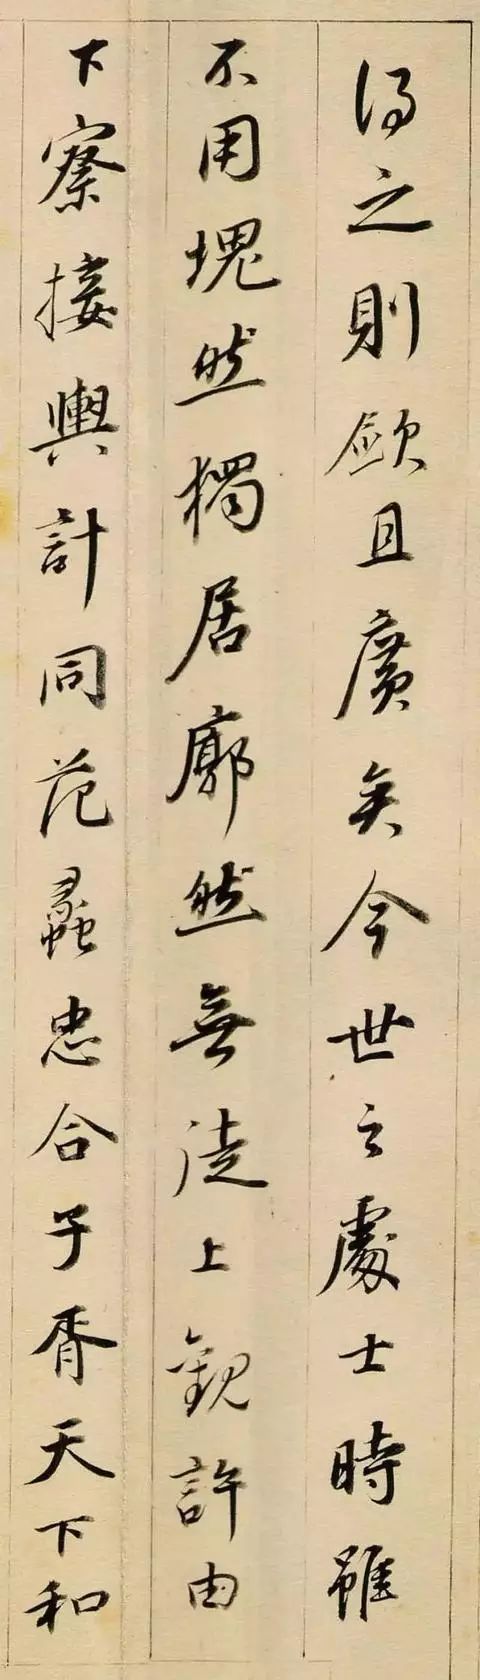 得之則且廣矣今世之處士時雖
不用塊然獨居廓然無徒上觀許由
下察接輿計同范蠡忠合子胥天下和